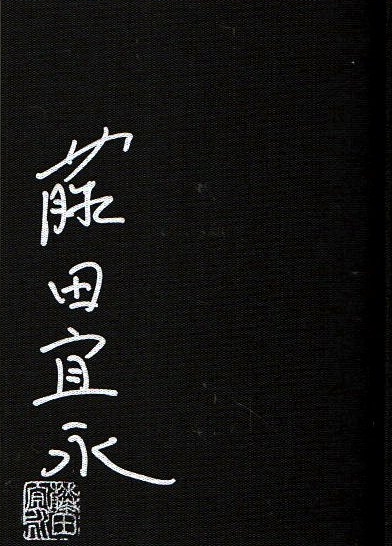 藤田宜永
藤田宜永